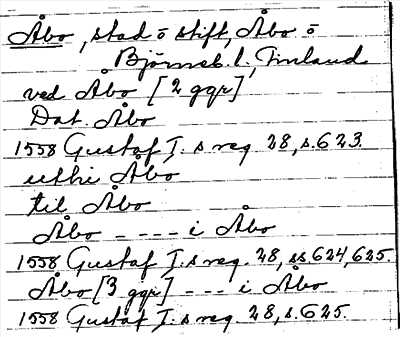 Åbo, stad o stift, Åbo o
Björneb. l., Finland
ved Åbo [2 ggr]
Dat. Åbo
1558 Gustaf I. s reg. 28, s. 623.
uthi Åbo
til Åbo
Åbo - - - - i Åbo
1558 Gustaf I. s reg. 28, ss. 624, 625.
Åbo [3 ggr] - - - i Åbo
1558 Gustaf I. s reg. 28, s. 625.